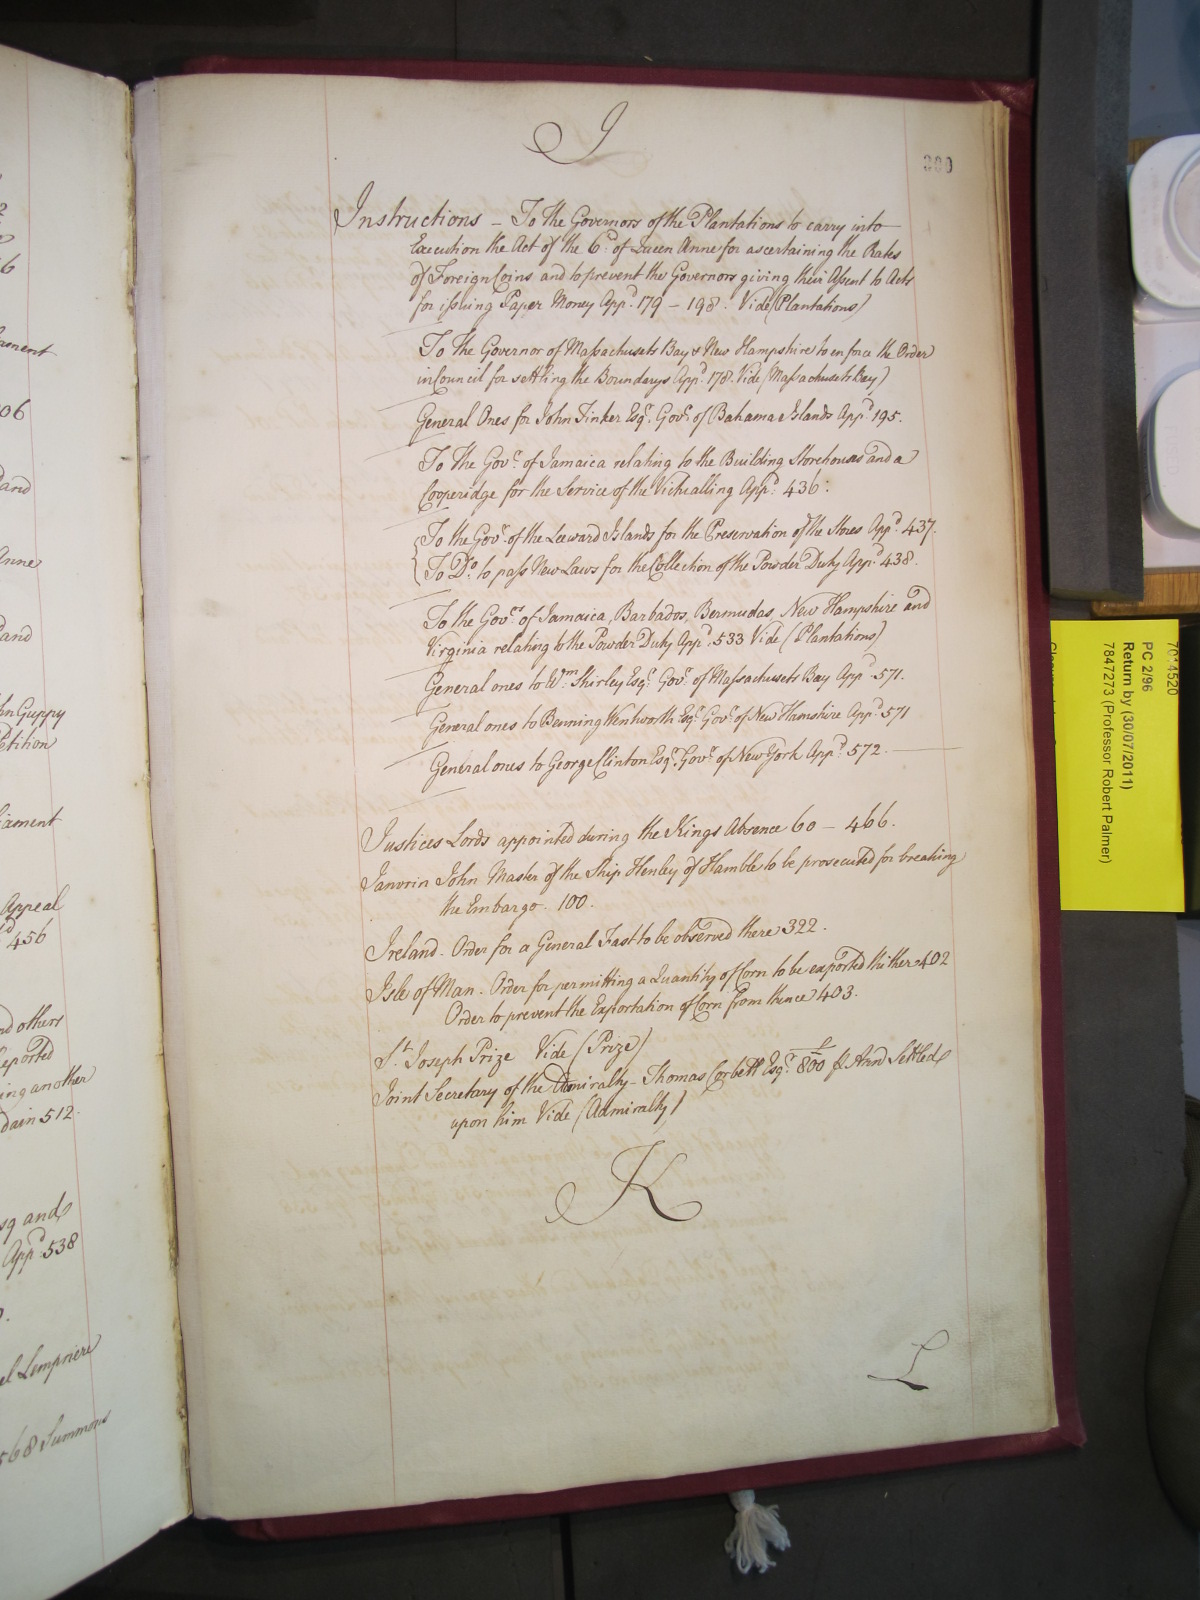 I
300
Instructions – To the Governors of the Plantations to carry into
Execution the Act of the 6.th of Queen Anne for ascertaining the Rates
of Foreign Coins and to prevent the Governors giving their Assent to Acts
for issuing Paper Money App.d 179 – 198. Vide (Plantations)
To the Governor of Massachusets Bay & New Hampshire to enforce the Order
in Council for settling the Boundarys App.d 178. Vide (Massachusets Bay)
General Ones for John Tinker Esq.r Gov.r of Bahama Islands App.d 195.
To the Gov.r of Jamaica relating to the Building Storehouses and a
Cooperidge for the Service of the Victualling App.d 436.
To the Gov.r of the Leeward Islands for the Preservation of the Stores App.d 437.
To D.o to pass New Laws for the Collection of the Powder Duty App.d 438.
To the Gov.rs of Jamaica, Barbados, Bermudas, New Hampshire and
Virginia relating to the Powder Duty App.d 533 Vide (Plantations)
General ones to W.m Shirley Esq.r Gov.r of Massachusets Bay App.d 571.
General ones to Benning Wentworth Esq.r Gov.r of New Hamshire App.d 571
General ones to George Clinton Esq.r Gov.r of New York App.d 572.
Justices Lords appointed during the Kings Absence 60 – 466.
Janvrin John Master of the Ship Henley of Hamble to be prosecuted for breaking
the Embargo. 100.
Ireland. Order for a General Fast to be observed there 322.
Isle of Man. Order for permitting a Quantity of Corn to be exported thither 402
Order to prevent the Exportation of Corn from thence 403.
S.t Joseph Prize Vide (Prize)
Joint Secretary of the Admiralty – Thomas Corbett Esq.r £800 p Ann Settled
upon him Vide (Admiralty)
K
L
and
Anne
and
Guppy
Petition
Appeal
456
nd others
ing another
512.
and
App.d 538
Lempriere
568 Summons
7014520
PC 2/96
Return by (30/07/2011)
7847273 (Professor Robert Palmer)